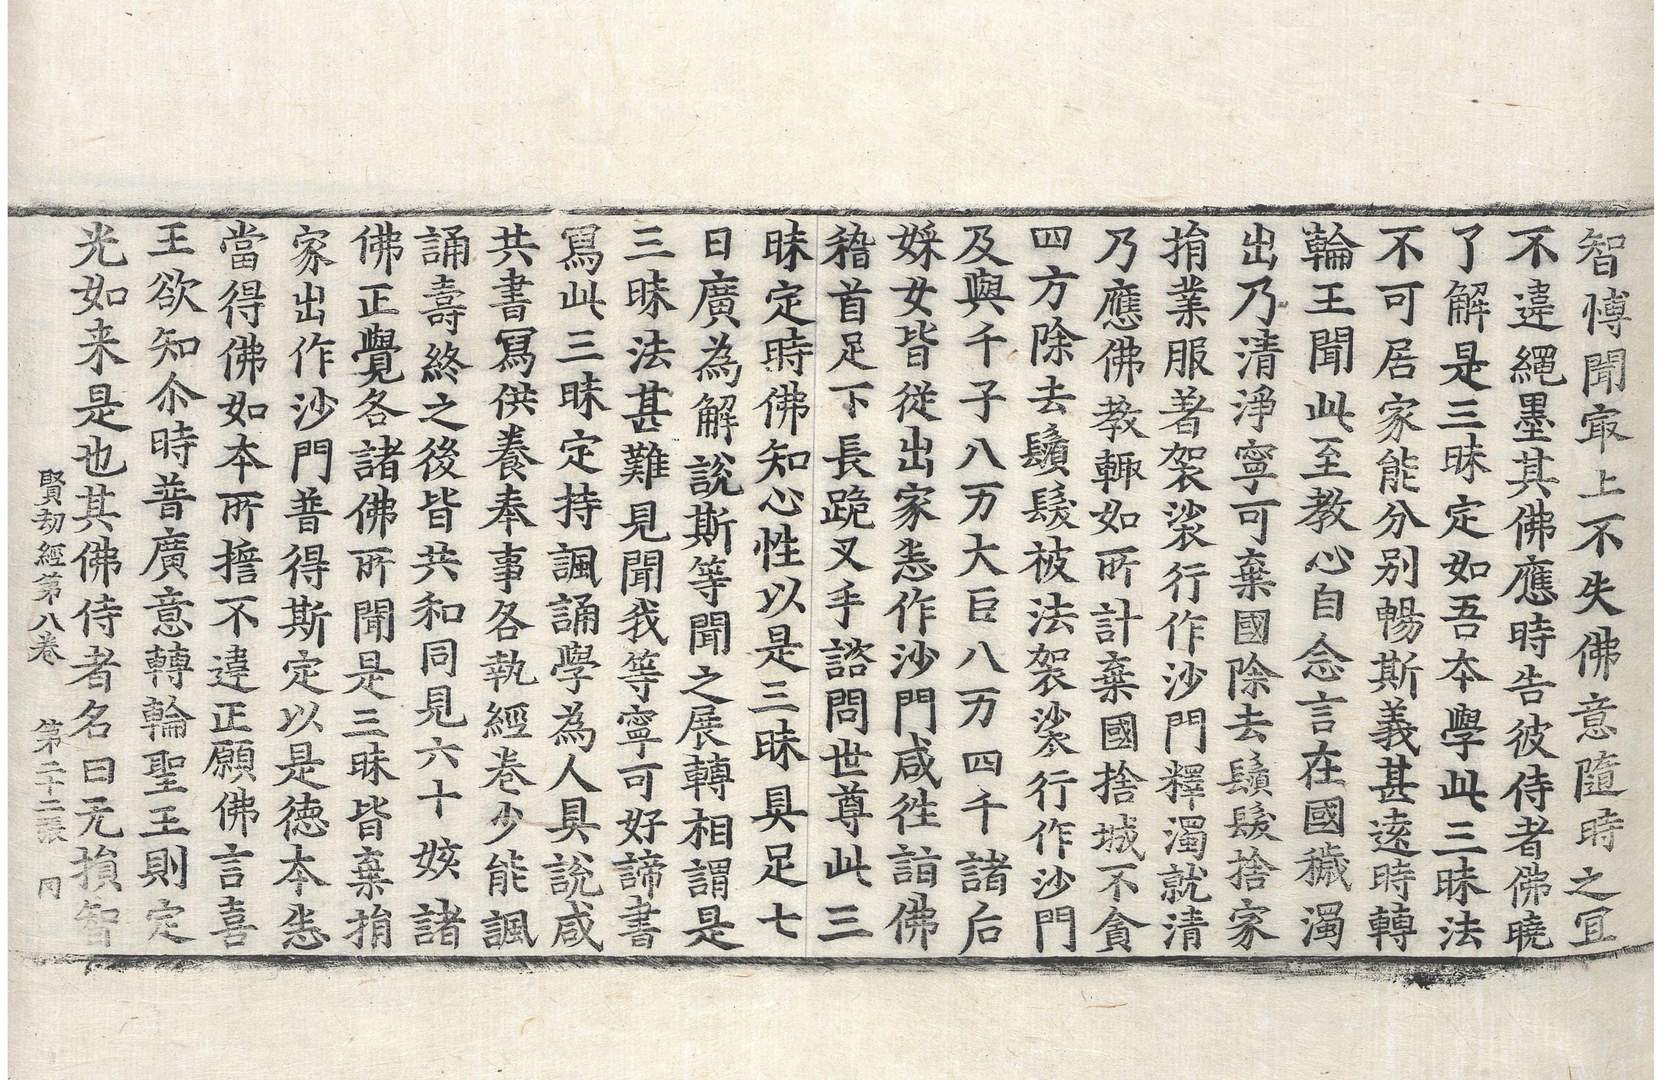 智愽聞㝡上不失佛意隨時之冝
不違繩墨其佛應時告彼侍者佛曉
了解是三昧定如吾夲學此三昧法
不可居家能分别暢斯義甚遠時轉
輪王聞此至教心自念言在國穢濁
出乃清淨寧可棄國除去鬚髮捨家
捐業服著袈裟行作沙門釋濁就清
乃應佛教輙如所計棄國捨城不貪
四方除去鬚髮被法袈裟行作沙門
及與千子八万大臣八万四千諸后
婇女皆從出家悉作沙門咸徃詣佛
稽首足下長跪叉手諮問世尊此三
昧定時佛知心性以是三昧具足七
日廣為解說斯等聞之展轉相謂是
三昧法甚難見聞我等寧可好諦書
寫此三昧定持諷誦學為人具說咸
共書寫供養奉事各執經卷少能諷
誦壽終之後皆共和同見六十姟諸
佛正覺各諸佛所聞是三昧皆棄捐
家出作沙門普得斯定以是德夲悉
當得佛如夲所擔不違正願佛言喜
王欲知尒時普廣意轉輪聖王則定
光如来是也其佛侍者名曰无損智
賢劫經第八卷　第二十二張　冃